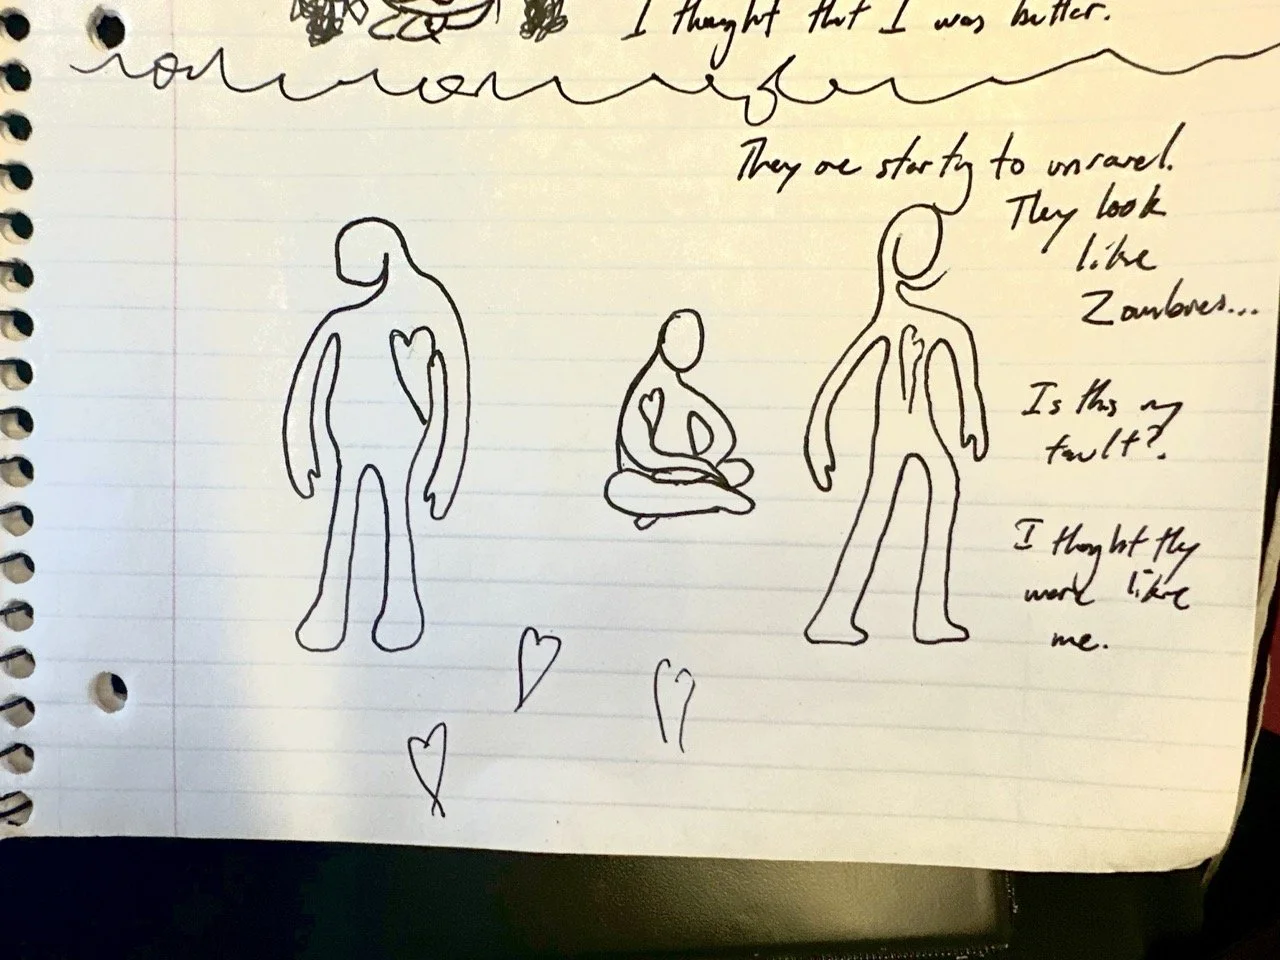 I thought that I was better.
They are starting to unravel.
They look
like
Zombies...
Is this my
fault?
I thought they
were like
me.